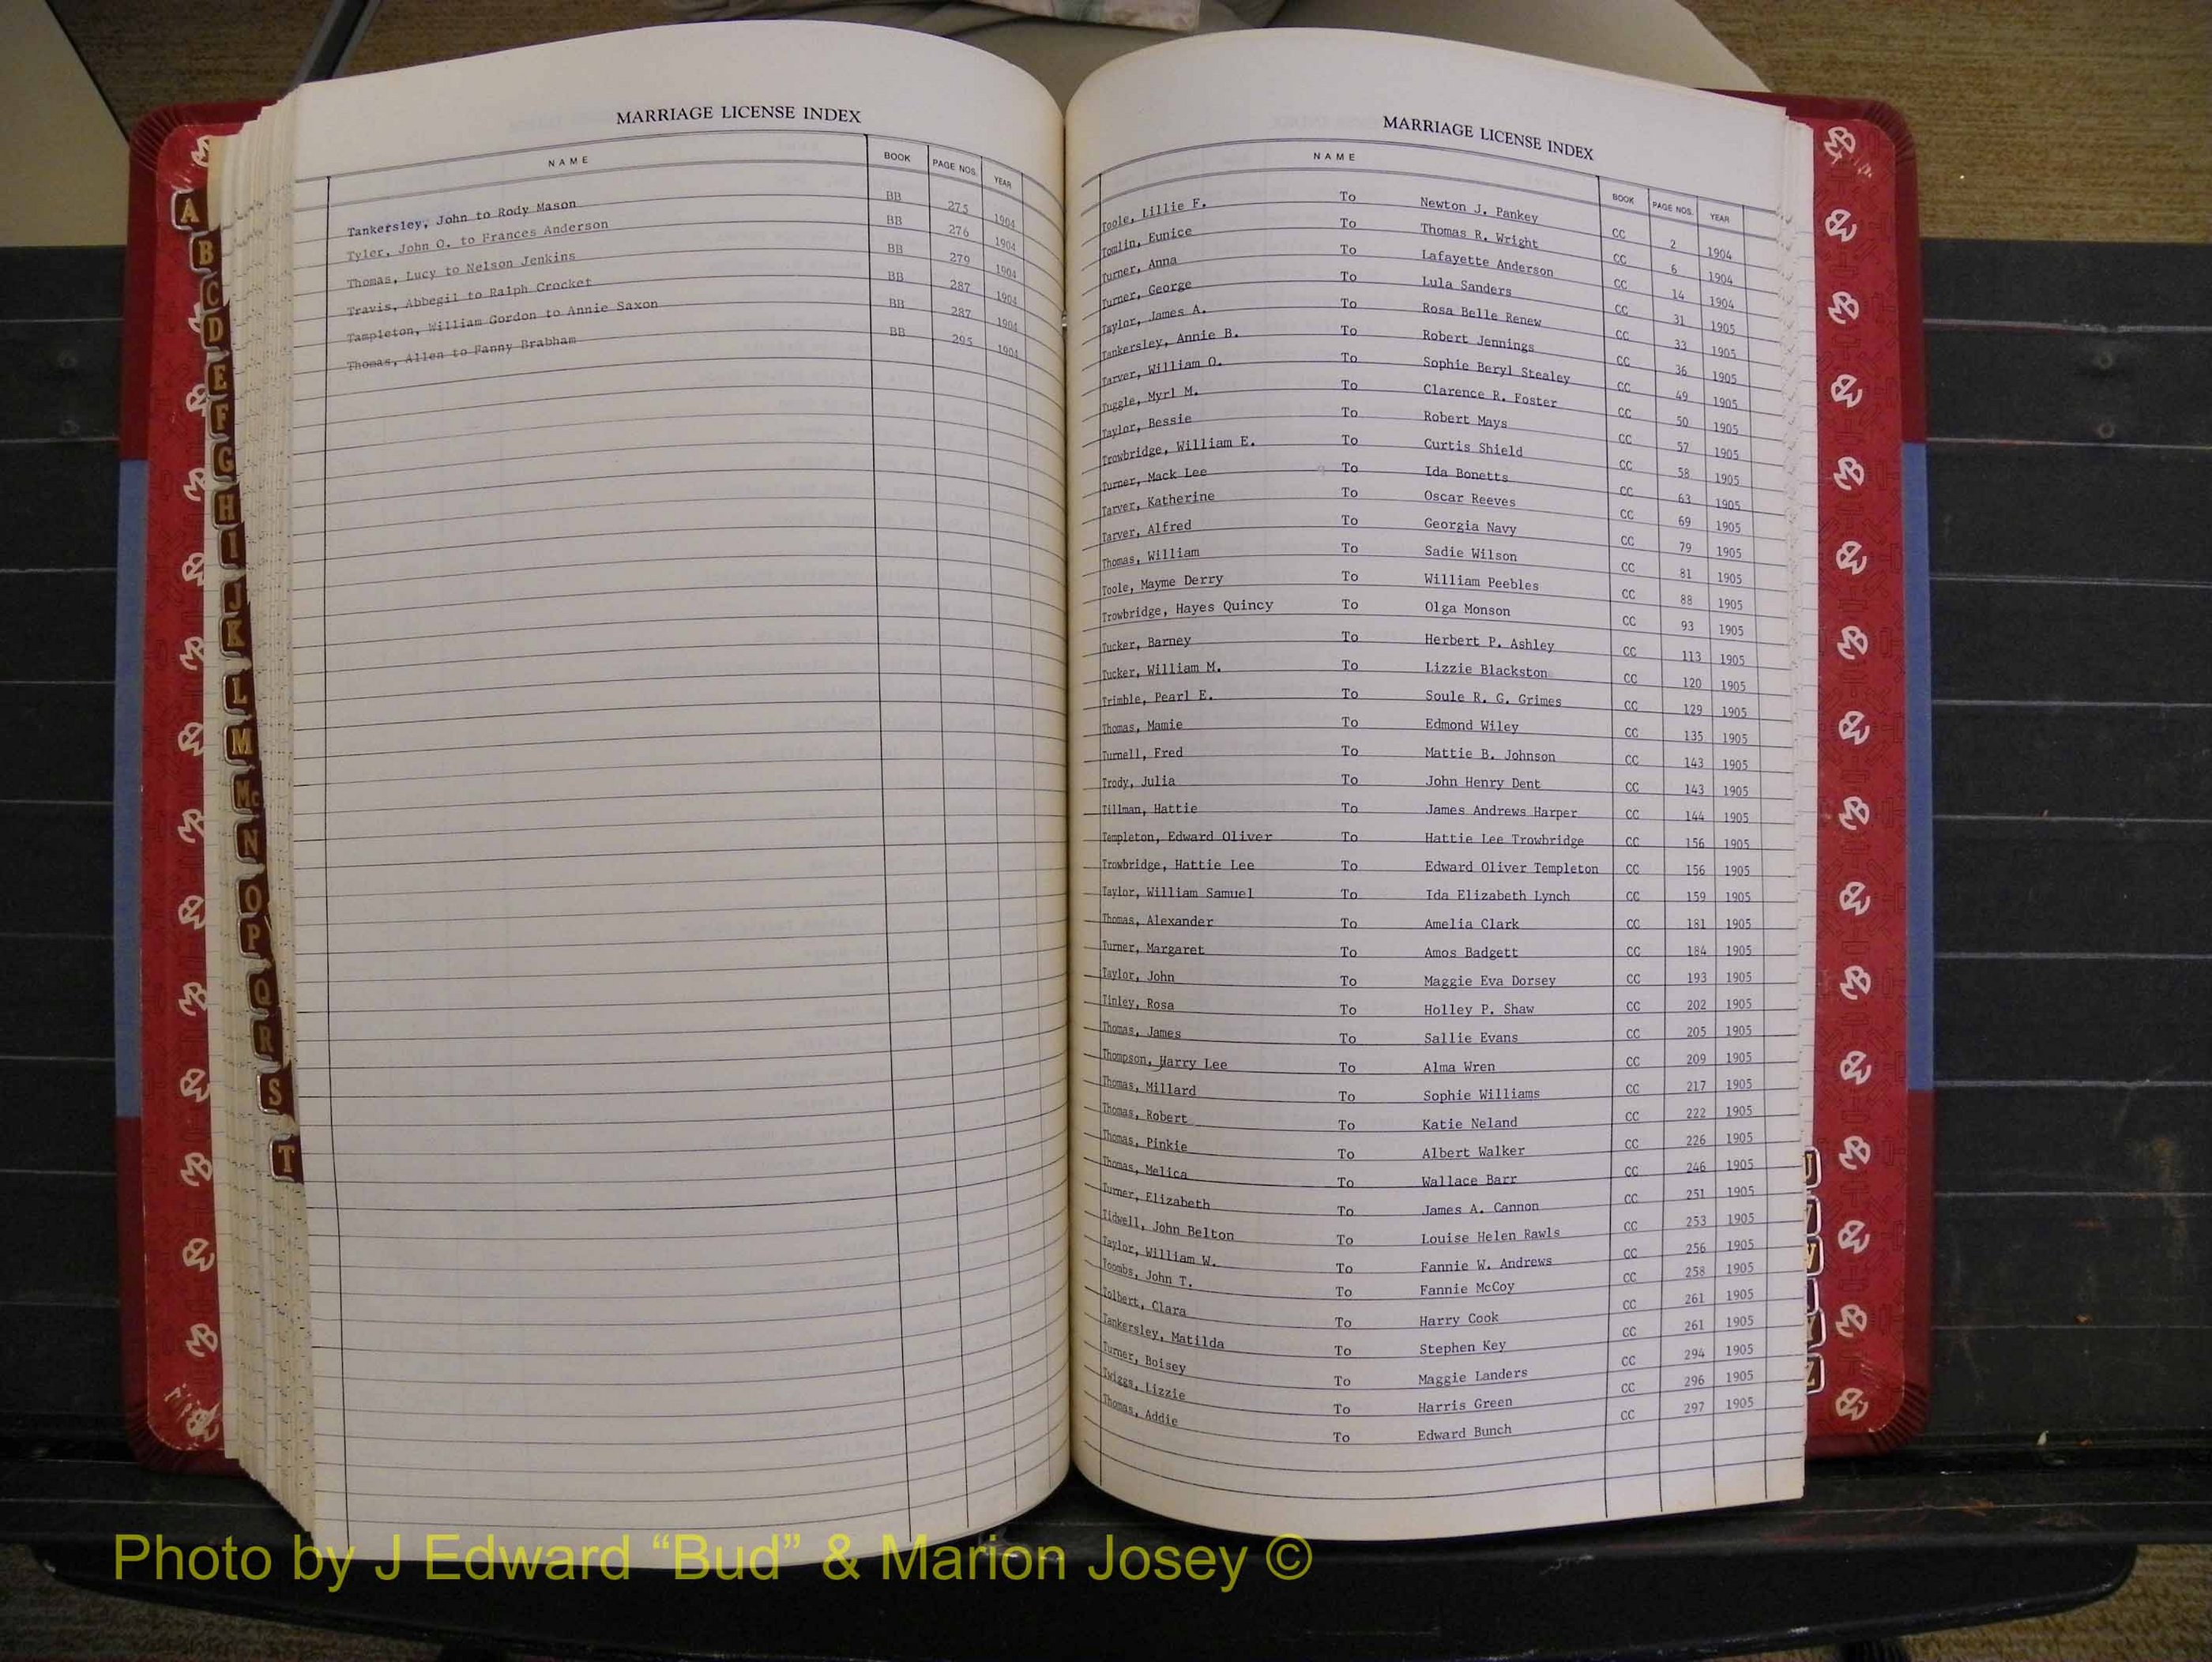 MARRIAGE LICENSE INDEX
NAME BOOK PAGE NOS. YEAR
Tankersley, John to Rody Mason BB 275 1904
Tyler, John O. to Frances Anderson BB 276 1904
Thomas, Lucy to Nelson Jenkins BB 279 1904
Travis, Abbegil to Ralph Crocket BB 287 1904
Tampleton, William Gordon to Annie Saxon BB 287 1904
Thomas, Allen to Fanny Brabham BB 295 1904
A
B
C
D
E
F
G
H
I
J
K
L
M
Mc
N
O
P
Q
R
S
T
MARRIAGE LICENSE INDEX
NAME BOOK PAGE NOS. YEAR
Toole, Lillie F. To Newton J. Pankey CC 2 1904
Tomlin, Eunice To Thomas R. Wright CC 6 1904
Turner, Anna To Lafayette Anderson CC 14 1904
Turner, George To Lula Sanders CC 31 1905
Taylor, James A. To Rosa Belle Renew CC 33 1905
Tankersley, Annie B. To Robert Jennings CC 36 1905
Tarver, William O. To Sophie Beryl Stealey CC 49 1905
Tuggle, Myrl M. To Clarence R. Foster CC 50 1905
Taylor, Bessie To Robert Mays CC 57 1905
Trowbridge, William E. To Curtis Shield CC 58 1905
Turner, Mack Lee To Ida Bonetts CC 63 1905
Tarver, Katherine To Oscar Reeves CC 69 1905
Tarver, Alfred To Georgia Navy CC 79 1905
Thomas, William To Sadie Wilson CC 81 1905
Toole, Mayme Derry To William Peebles CC 88 1905
Trowbridge, Hayes Quincy To Olga Monson CC 93 1905
Tucker, Barney To Herbert P. Ashley CC 113 1905
Tucker, William M. To Lizzie Blackston CC 120 1905
Trimble, Pearl E. To Soule R. G. Grimes CC 129 1905
Thomas, Mamie To Edmond Wiley CC 135 1905
Turnell, Fred To Mattie B. Johnson CC 143 1905
Trody, Julia To John Henry Dent CC 143 1905
Tillman, Hattie To James Andrews Harper CC 144 1905
Templeton, Edward Oliver To Hattie Lee Trowbridge CC 156 1905
Trowbridge, Hattie Lee To Edward Oliver Templeton CC 156 1905
Taylor, William Samuel To Ida Elizabeth Lynch CC 159 1905
Thomas, Alexander To Amelia Clark CC 181 1905
Turner, Margaret To Amos Badgett CC 184 1905
Taylor, John To Maggie Eva Dorsey CC 193 1905
Tinley, Rosa To Holley P. Shaw CC 202 1905
Thomas, James To Sallie Evans CC 205 1905
Thompson, Harry Lee To Alma Wren CC 209 1905
Thomas, Millard To Sophie Williams CC 217 1905
Thomas, Robert To Katie Neland CC 222 1905
Thomas, Pinkie To Albert Walker CC 226 1905
Thomas, Melica To Wallace Barr CC 246 1905
Turner, Elizabeth To James A. Cannon CC 251 1905
Tidwell, John Belton To Louise Helen Rawls CC 253 1905
Taylor, William W. To Fannie W. Andrews CC 256 1905
Toombs, John T. To Fannie McCoy CC 258 1905
Tolbert, Clara To Harry Cook CC 261 1905
Tankersley, Matilda To Stephen Key CC 261 1905
Turner, Boisey To Maggie Landers CC 294 1905
Twiggs, Lizzie To Harris Green CC 296 1905
Thomas, Addie To Edward Bunch CC 297 1905
Photo by J Edward “Bud” & Marion Josey ©